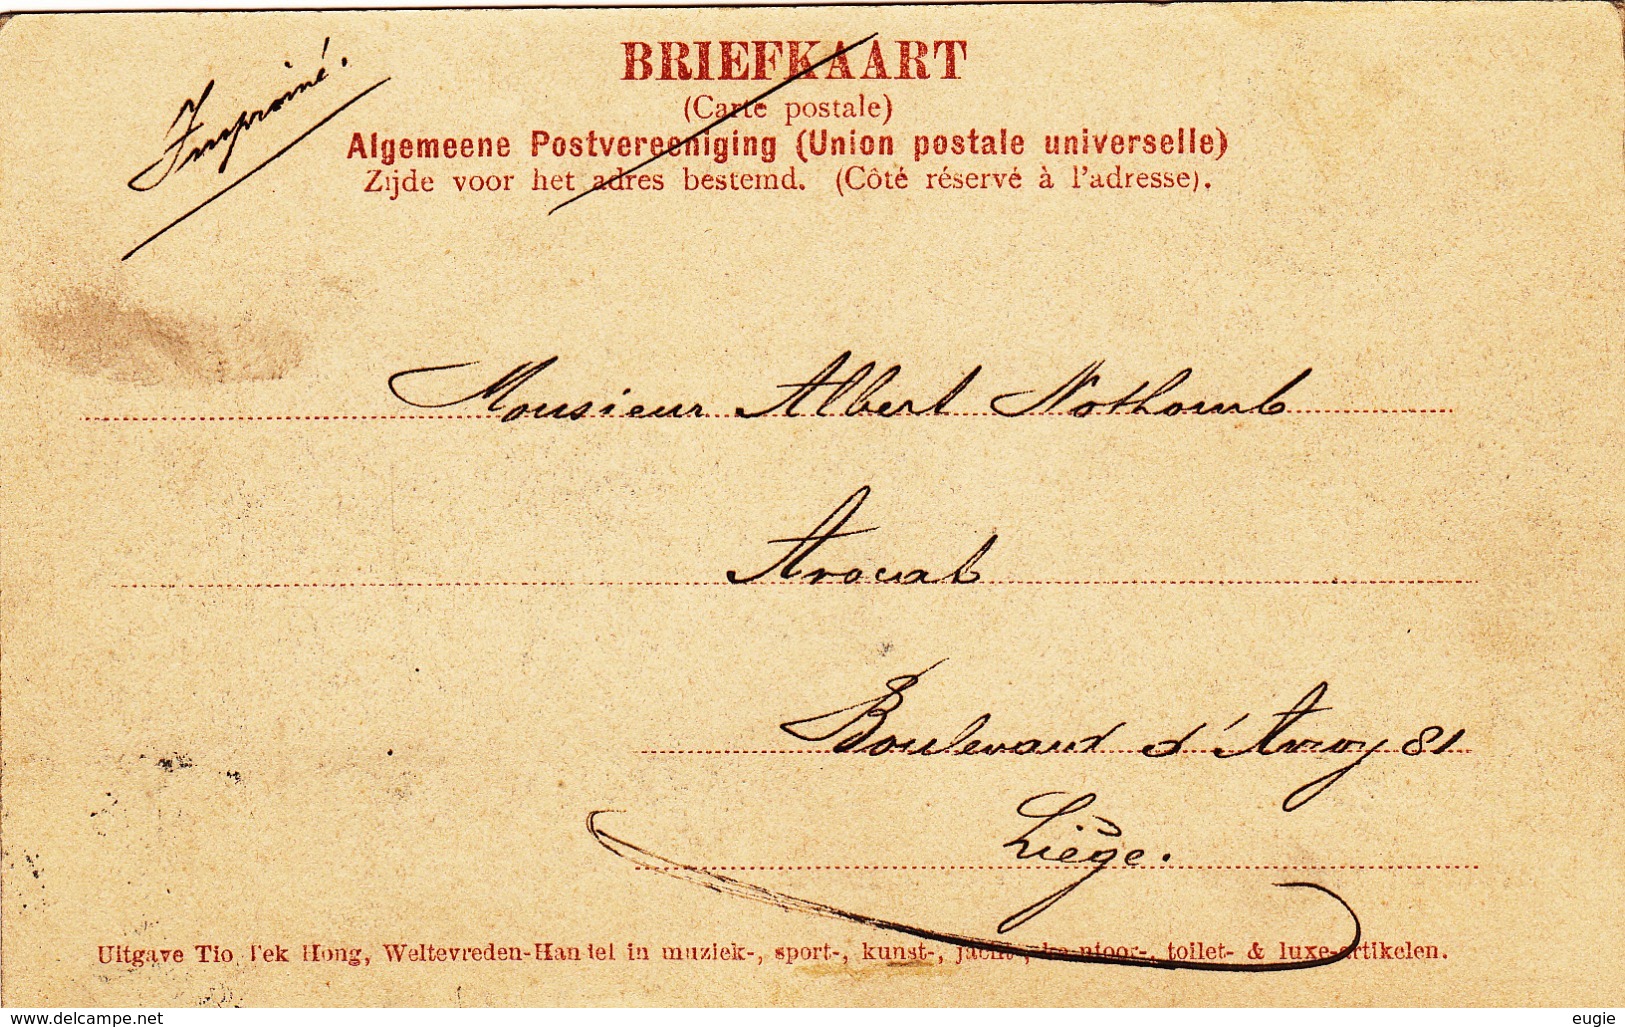 Imprimé.
BRIEFKAART
(Carte postale)
Algemeene Postvereeniging (Union postale universelle)
Zijde voor het adres bestemd. (Côté réservé à l'adresse).
Monsieur Albert Nothomb
Avocat
Boulevard d'Avroy 81
Liège.
Uitgave Tio Tek Hong, Weltevreden-Handel in muziek-, sport-, kunst-, jacht-, kantoor-, toilet- & luxe-artikelen.
www.delcampe.net
eugie